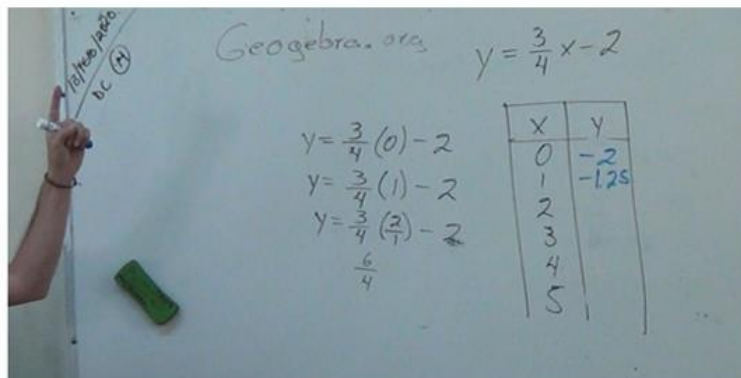 13/Feb/2020
DC (M)
Geogebra.org
y = 3/4 x - 2
y = 3/4 (0) - 2
y = 3/4 (1) - 2
y = 3/4 (2/1) - 2
6/4
X Y
0 -2
1 -1.25
2
3
4
5